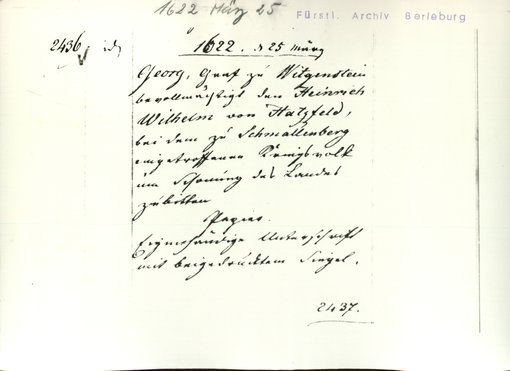 1622 März 25
Fürstl. Archiv Berleburg
2436
1622. 25 März
Georg, Graf zu Witgenstein
bevollmächtigt den Heinrich
Wilhelm von Hatzfeld,
bei dem zu Schmallenberg
eingetroffenen Kriegsvolk
um Schonung des Landes
zubitten
Papier.
Eigenhändige Unterschrift
mit beigedrucktem Siegel.
2437.